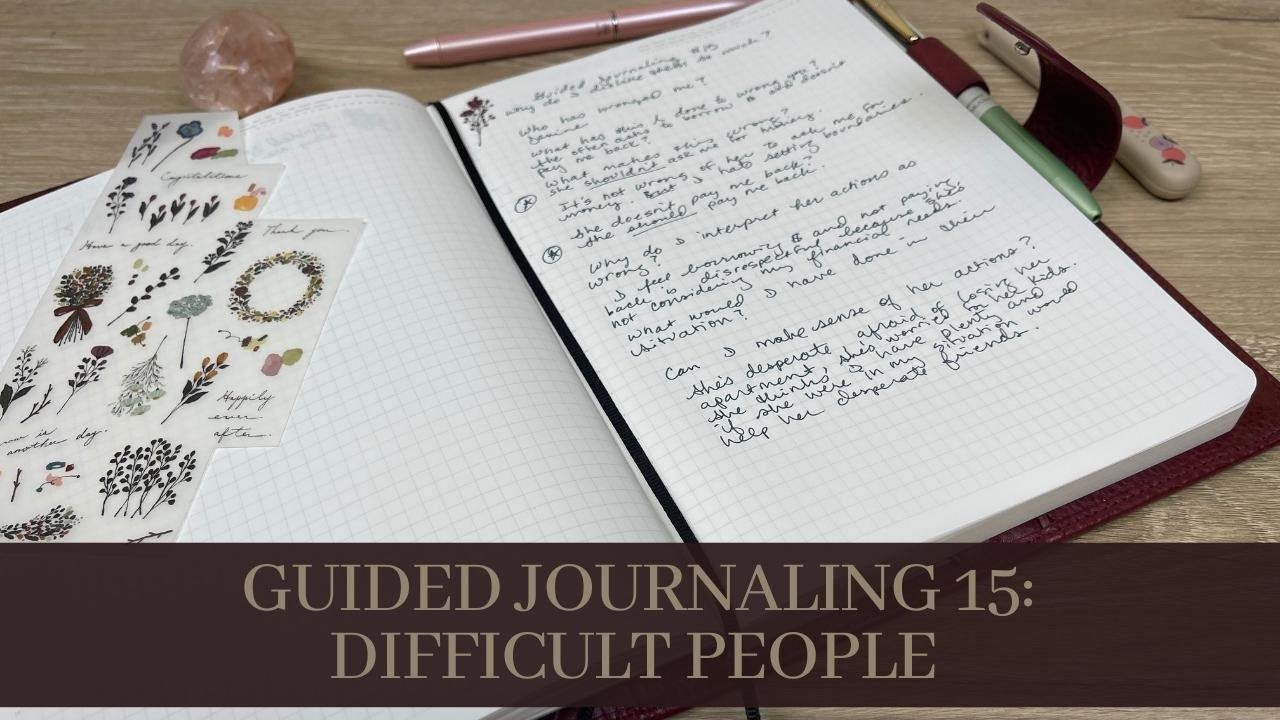 Guided Journaling #15
Why do I dislike them so much?
Who has wronged me?
Janine
What has this P. done to wrong you?
She often asks to borrow $ and doesn't
pay me back?
What makes this wrong?
She shouldn't ask me for money.
It's not wrong of her to ask me for
money. I just hate setting boundaries.
She doesn't pay me back?
She should pay me back.
Why do I interpret her actions as
wrong?
I feel borrowing $ and not paying
back is disrespectful because she's
not considering my financial needs.
What would I have done in their
situation?
Can I make sense of her actions?
She's desperate, afraid of losing her
apartment, she's worried for her kids.
She thinks I have plenty and
if she were in my situation would
help her desperate friends.
Congratulations
Have a good day.
Thank you
Happily
ever
after.
another day.
GUIDED JOURNALING 15:
DIFFICULT PEOPLE